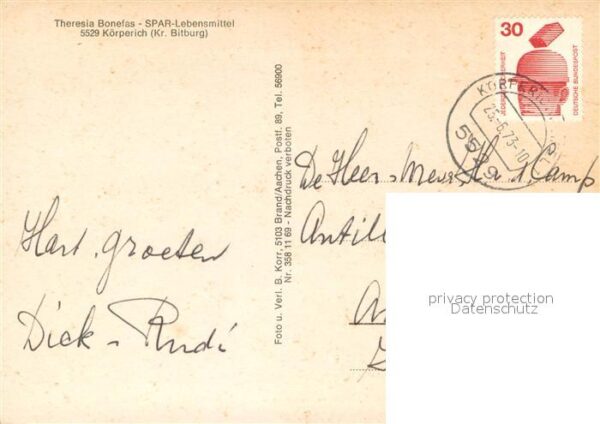 Theresia Bonefas - SPAR-Lebensmittel
5529 Körperich (Kr. Bitburg)
Hart. groeten
Dick - Rudi
Foto u. Verl. B. Korr, 5103 Brand/Aachen, Postf. 89, Tel. 56900
Nr. 358 11 69 - Nachdruck verboten
30
DEUTSCHE BUNDESPOST
KÖRPERICH
25.-6.73-10
5529
De Heer - Mevr. H. v. d. Camp
Antil
privacy protection
Datenschutz